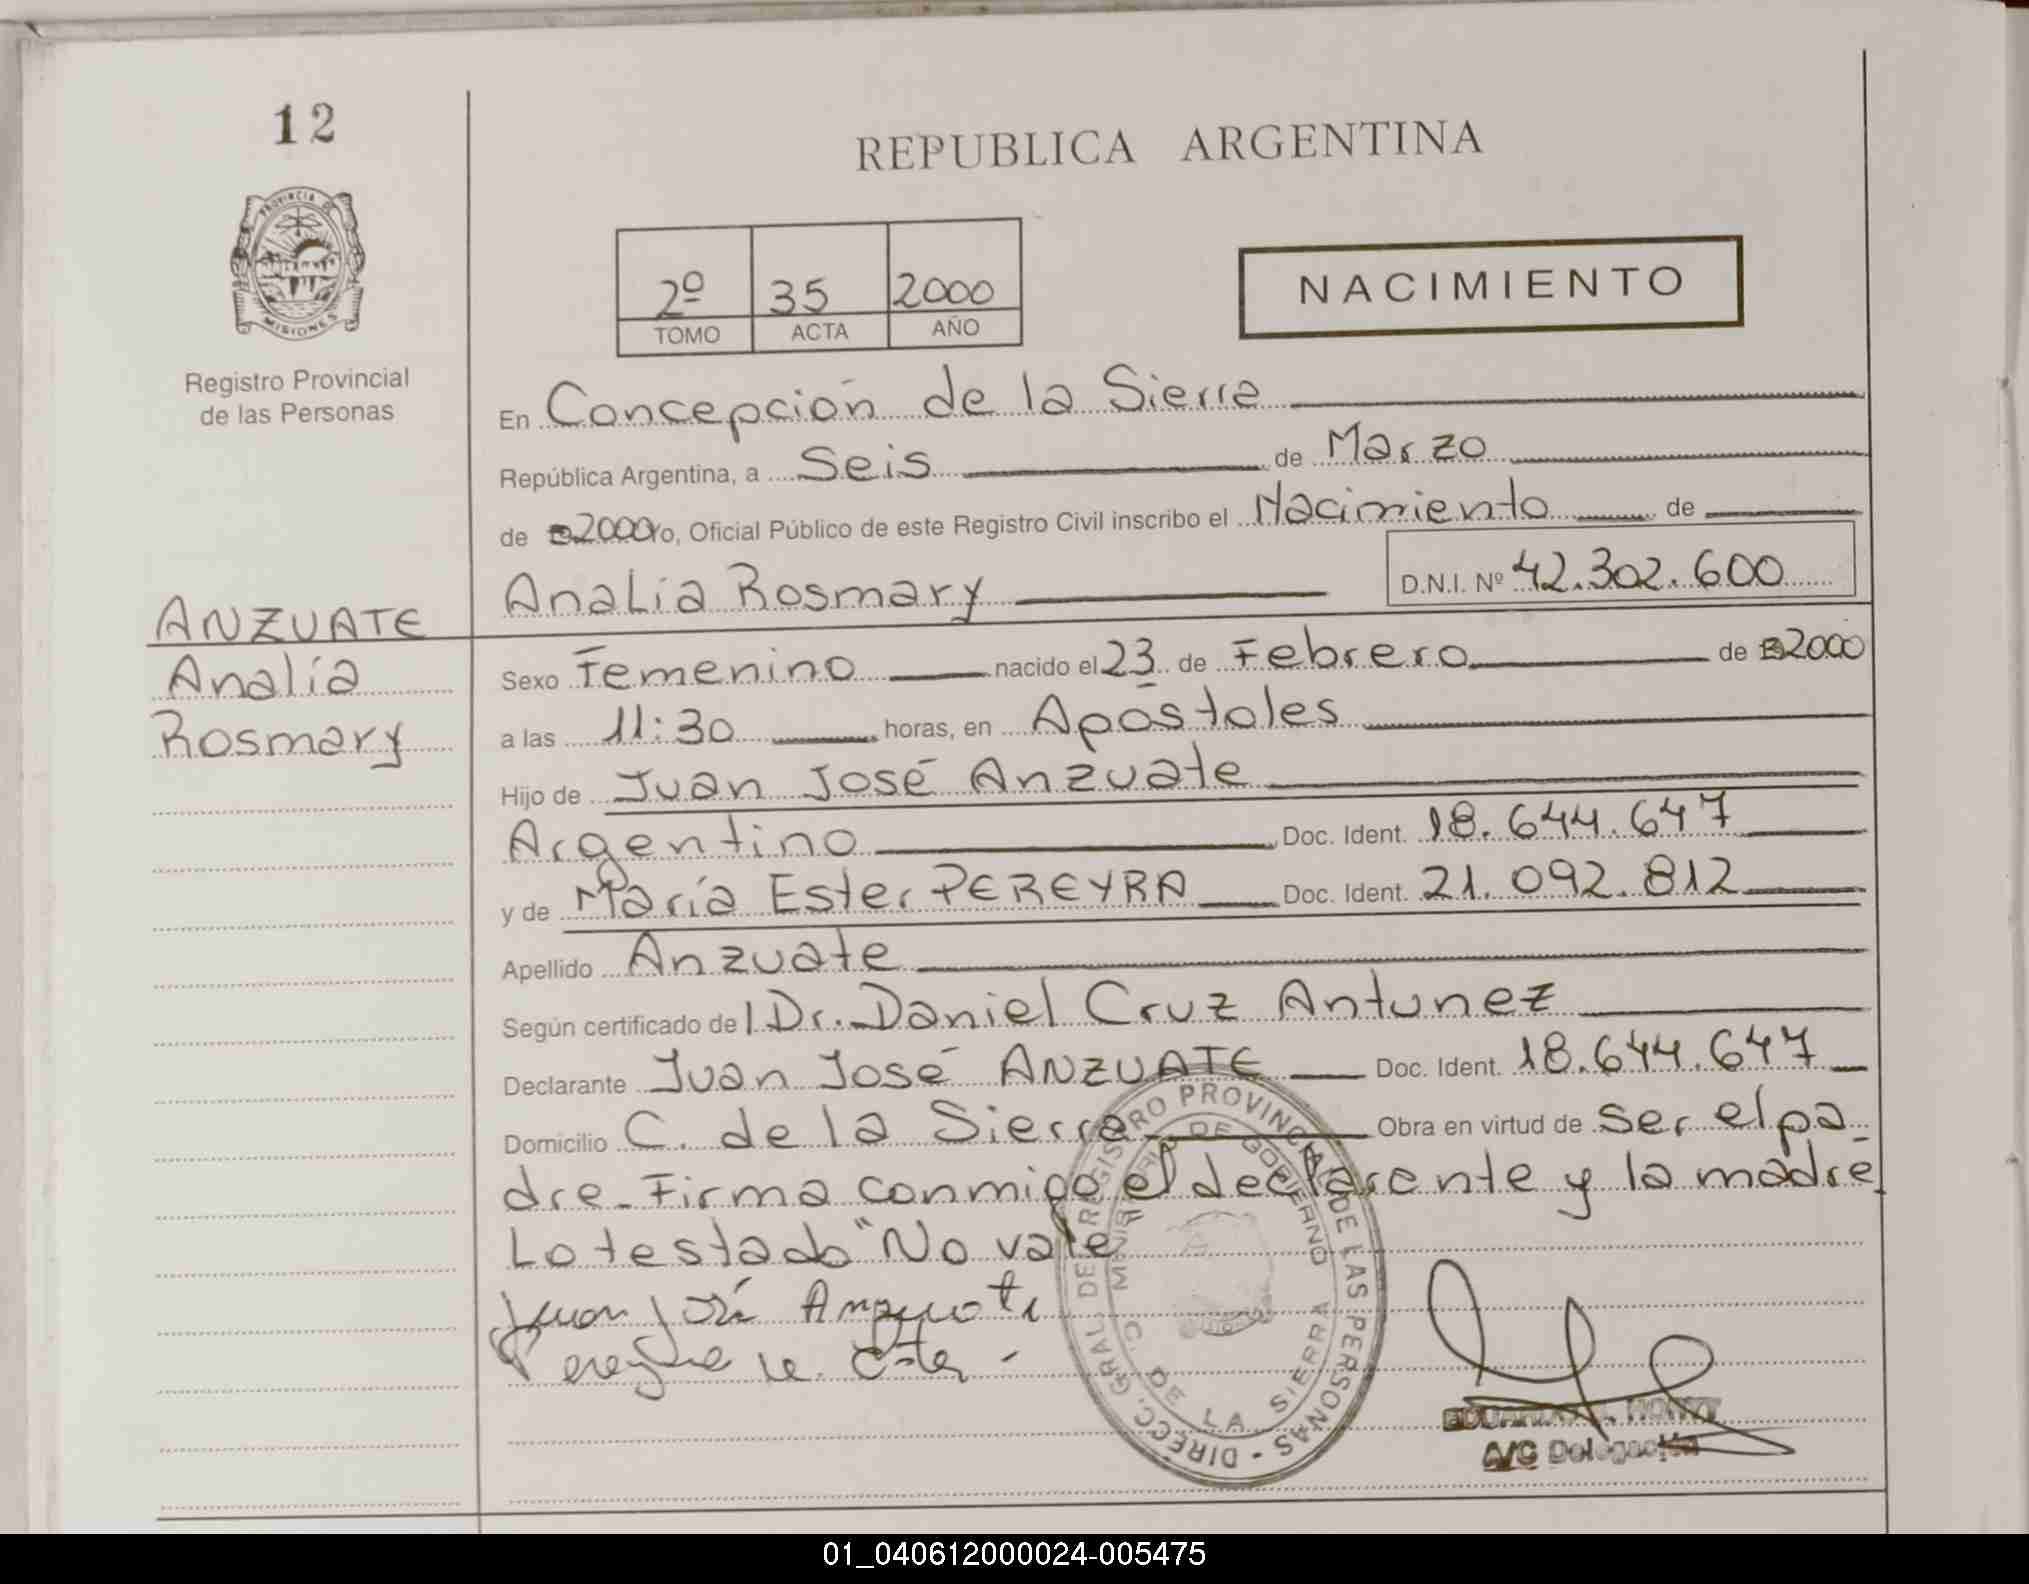 12
REPUBLICA ARGENTINA
PROVINCIA DE
MISIONES
Registro Provincial
de las Personas
2º 35 2000
TOMO ACTA AÑO
NACIMIENTO
En Concepción de la Sierra
República Argentina, a Seis de Marzo
de 2000 Yo, Oficial Público de este Registro Civil inscribo el Nacimiento de
Analía Rosmary D.N.I. Nº 42.302.600
ANZUATE
Analía
Rosmary
Sexo Femenino nacido el 23 de Febrero de 2000
a las 11:30 horas, en Apóstoles
Hijo de Juan José Anzuate
Argentino Doc. Ident. 18.644.647
y de María Ester PEREYRA Doc. Ident. 21.092.812
Apellido Anzuate
Según certificado del Dr. Daniel Cruz Antunez
Declarante Juan José ANZUATE Doc. Ident. 18.644.647
Domicilio C. de la Sierra Obra en virtud de ser el pa-
dre-Firma conmigo el declarante y la madre
Lo testado "No vale"
Juan José Anzuate
Pereyra M. Ester -
DIRECC. GRAL. DE REGISTRO PROVINCIAL DE LAS PERSONAS -
MINISTERIO DE GOBIERNO
C. DE LA SIERRA
A/C Delegación
01_040612000024-005475